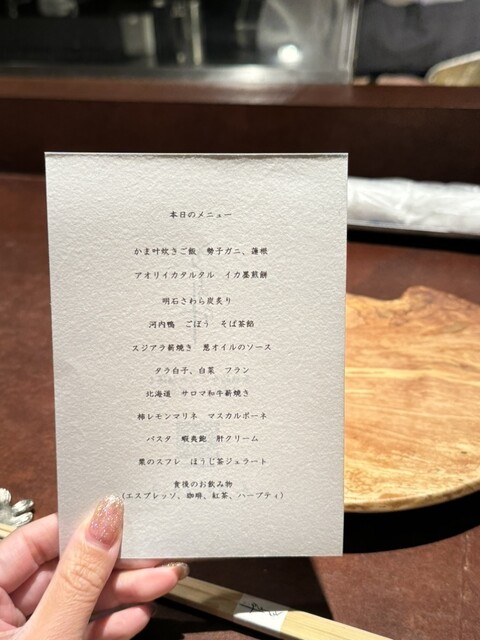 本日のメニュー
かま叶炊きご飯　勢子ガニ、蓮根
アオリイカタルタル　イカ墨煎餅
明石さわら炭炙り
河内鴨　ごぼう　そば茶餡
スジアラ薪焼き　葱オイルのソース
タラ白子、白菜　フラン
北海道　サロマ和牛薪焼き
柿レモンマリネ　マスカルポーネ
パスタ　蝦夷鮑　肝クリーム
栗のスフレ　ほうじ茶ジェラート
食後のお飲み物
（エスプレッソ、珈琲、紅茶、ハーブティ）